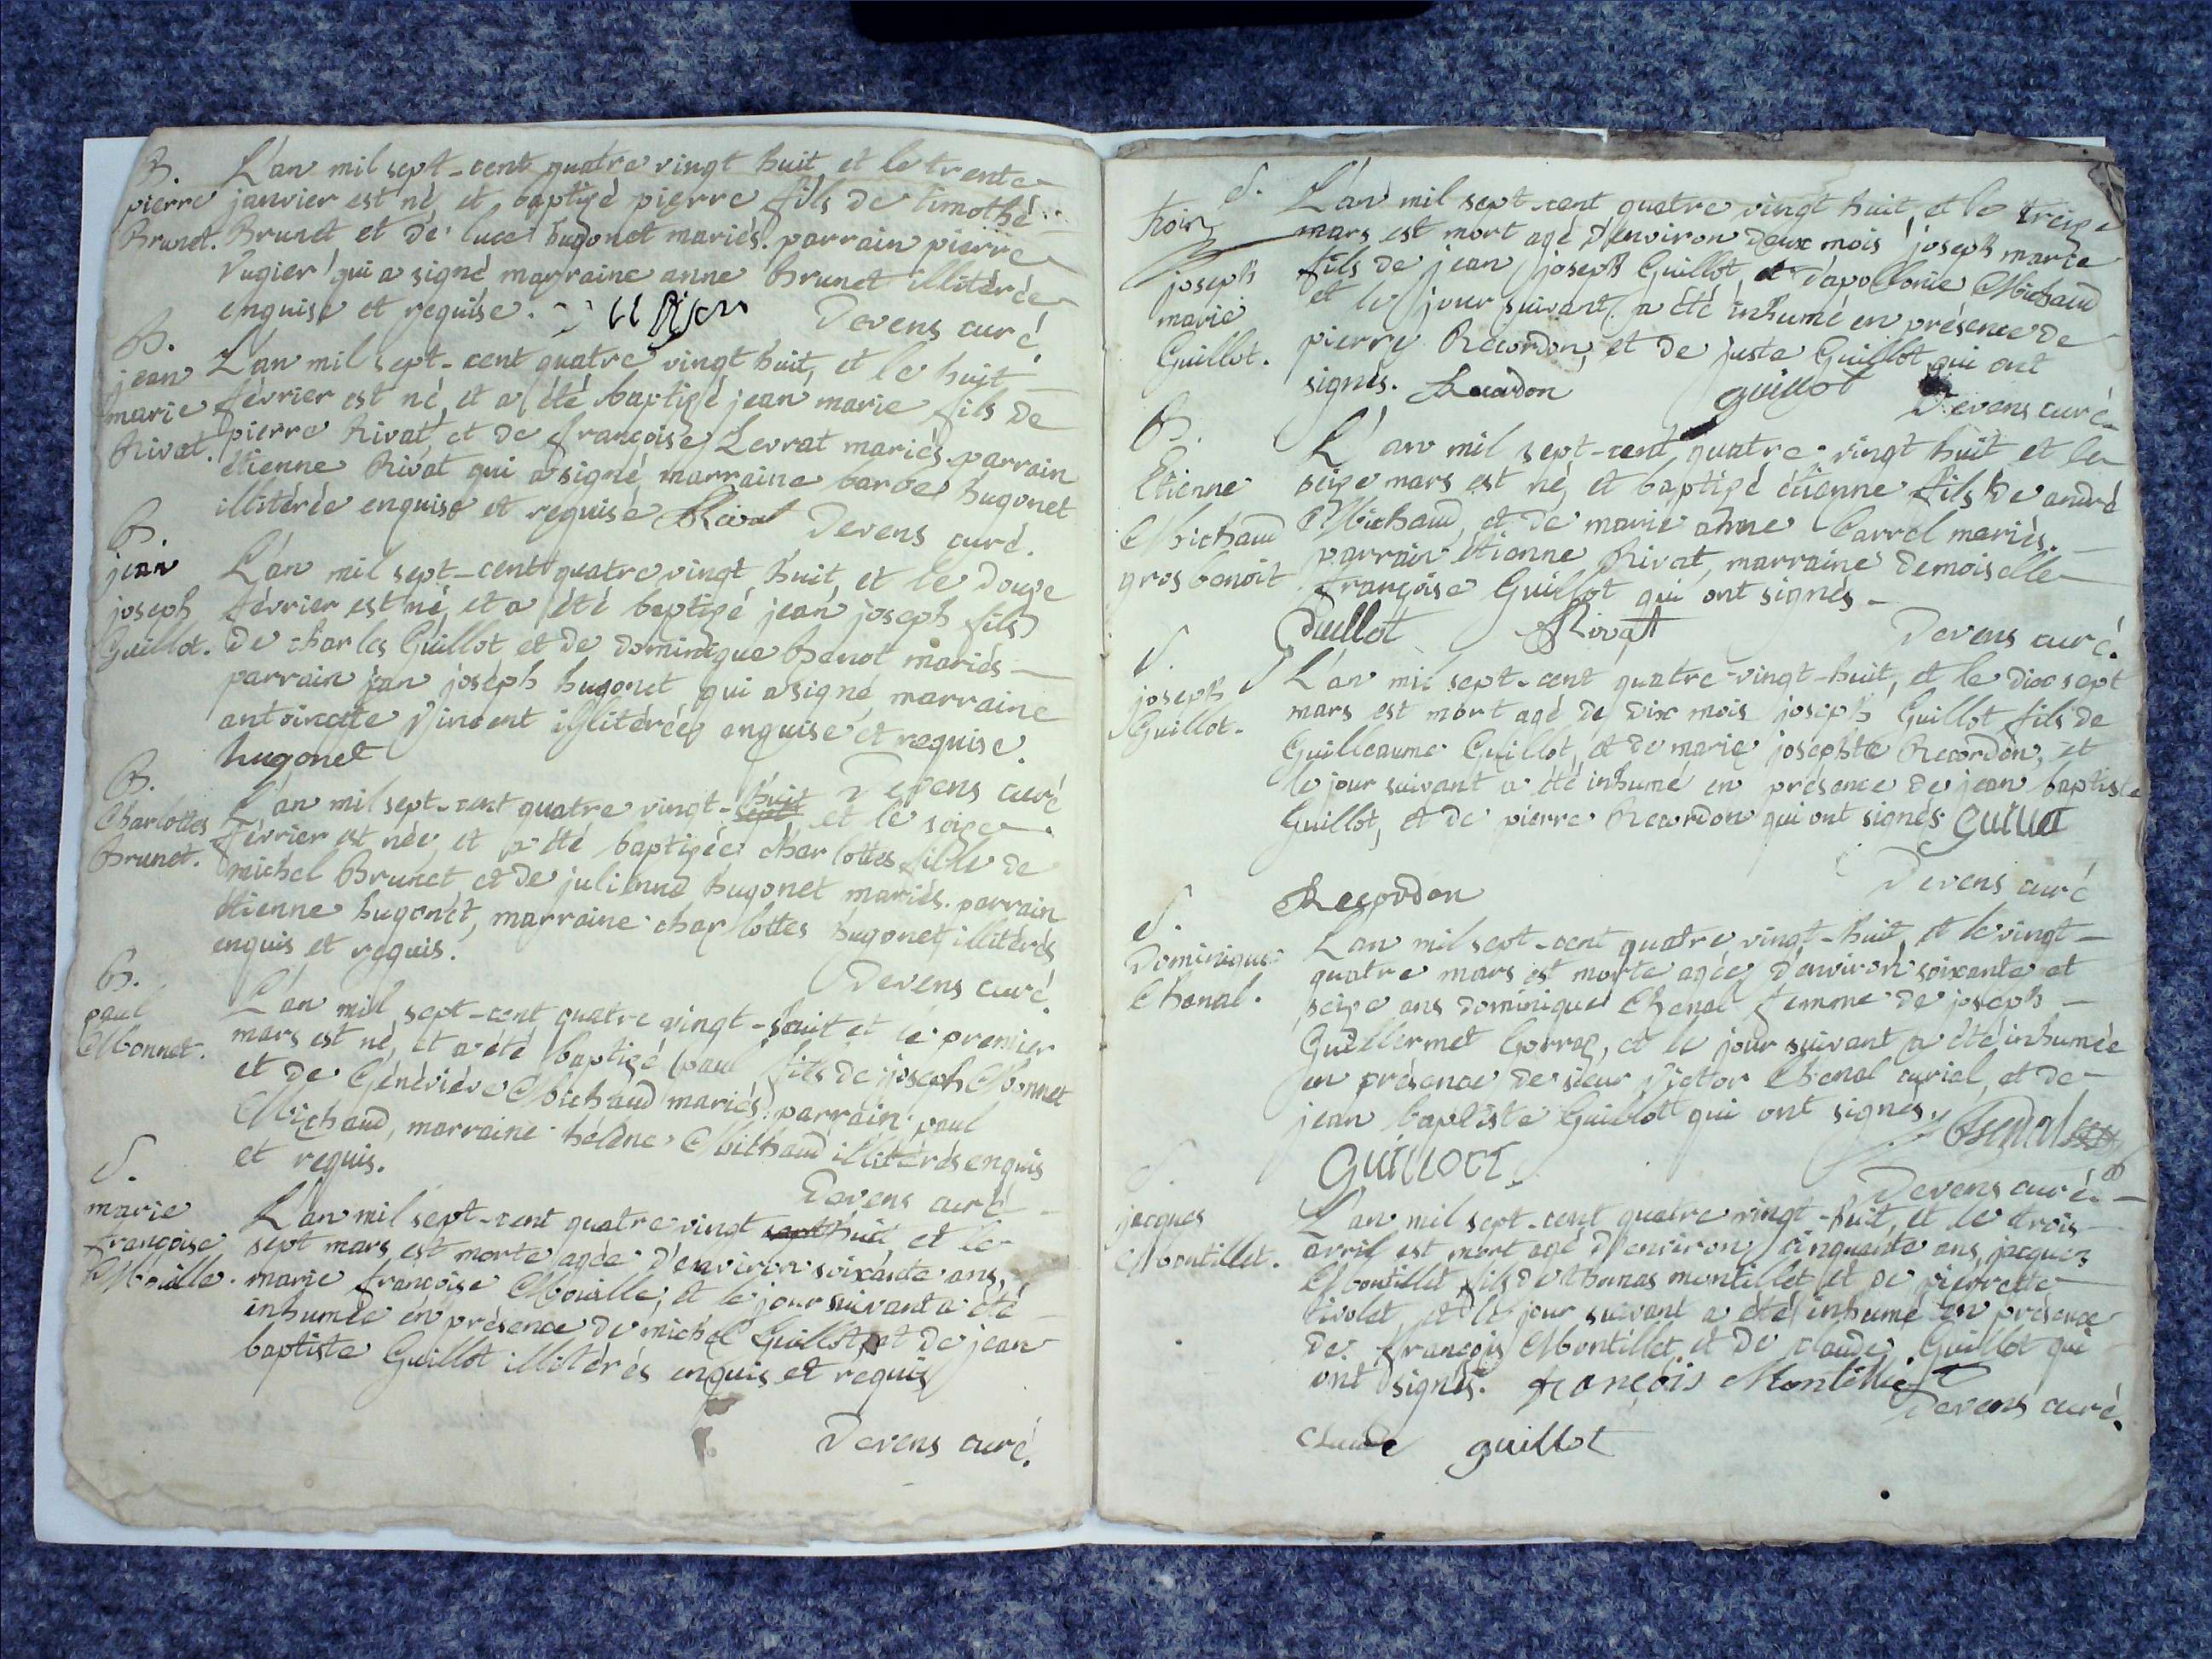 B. L'an mil sept-cent quatre vingt huit, et le trente
pierre janvier est né, et baptizé pierre fils de timothé
Brunet. Brunet et de luce hugonet mariés. parrain pierre
Vugier qui a signé marraine anne Brunet illitérée
enquise et requise. Devens curé.
B. L'an mil sept-cent quatre vingt huit, et le huit
jean février est né, et a été baptizé jean marie fils de
marie pierre Rivat, et de françoise Levrat mariés. parrain
Rivat. étienne Rivat qui a signé, marraine barbe hugonet
illitérée enquise et requise Rivat Devens curé.
B.
jean L'an mil sept-cent quatre vingt huit, et le douze
joseph février est né, et a été baptizé jean joseph fils
Guillot. de charles Guillot et de dominique Benot mariés
parrain jean joseph hugonet qui a signé, marraine
antoinette Vincent illitérée enquise et requise.
hugonet Devens curé
B. L'an mil sept-cent quatre vingt-sept huit et le seize
Charlottes février est née, et a été baptizée charlottes fille de
Brunet. michel Brunet, et de julienne hugonet mariés. parrain
étienne hugonet, marraine charlottes hugonet illitérés
enquis et requis. Devens curé.
B.
paul L'an mil sept-cent quatre vingt-huit et le premier
Monnet. mars est né, et a été baptizé paul fils de joseph Monnet
et de Généviéve Michaud mariés. parrain paul
Michaud, marraine héléne Michaud illitérés enquis
et requis. Devens curé
S.
marie L'an mil sept-cent quatre vingt sept huit et le
françoise sept mars est morte agée d'environ soixante ans,
Moille. marie françoise Moille, et le jour suivant a été
inhumée en présence de michel Guillot, et de jean
baptiste Guillot illitérés enquis et requis
Devens curé.
S. L'an mil sept-cent quatre vingt huit, et le treize
mars est mort agé d'environ deux mois joseph marie
joseph fils de jean joseph Guillot, et d'apollonie Michaud
marie et le jour suivant a été inhumé en présence de
Guillot. pierre Recordon, et de juste Guillot qui ont
signés. Recordon guillot Devens curé
B. L'an mil sept-cent quatre-vingt huit et le
Etienne seize mars est né, et baptizé étienne fils de andré
Michaud Michaud, et de marie anne Carrel mariés.
gros benoit parrain étienne Rivat, marraine demoiselle
françoise Guillot qui ont signés
Guillot Rivat Devens curé.
S. L'an mil sept-cent quatre-vingt-huit, et le dix sept
joseph mars est mort agé de dix mois joseph Guillot fils de
Guillot. Guilleaume Guillot, et de marie josephte Recordon, et
le jour suivant a été inhumé en présence de jean baptiste
Guillot, et de pierre Recordon qui ont signés Guillot
Devens curé
Recordon
S. L'an mil sept-cent quatre vingt-huit, et le vingt-
Dominique quatre mars est morte agée d'environ soixante et
Chenal. seize ans dominique Chenal femme de joseph
Guillermet Corraz, et le jour suivant a été inhumée
en présence de sieur Victor Chenal curial, et de
jean baptiste Guillot qui ont signés. Chenal
GUilloCt Devens curé
S.
jacques L'an mil sept-cent quatre vingt-huit, et le trois
Montillet. avril est mort agé d'environ cinquante ans, jacques
Montillet fils de thomas montillet et de pierrette
Tivolet, et le jour suivant a été inhumé en présence
de françois Montillet, et de claude Guillot qui
ont signés. françois Montillet
Devens curé.
claude guillot